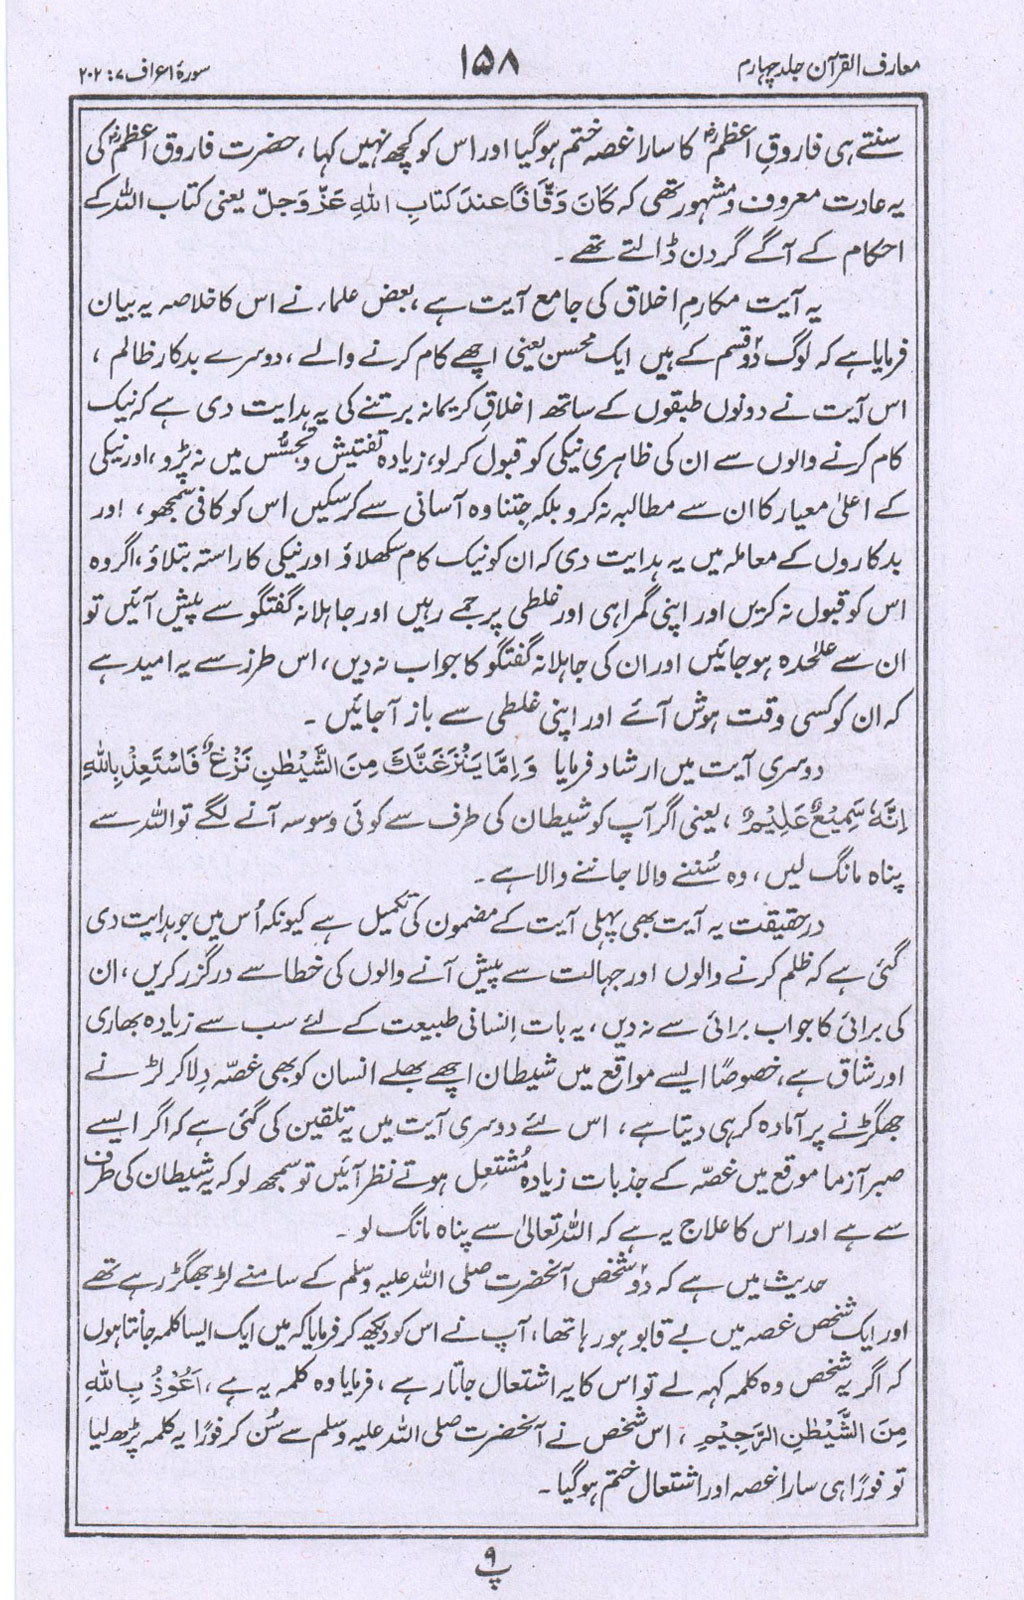 معارف القرآن جلد چہارم ۱۵۸ سورۂ اعراف ۷: ۲۰۲
سنتے ہی فاروقِ اعظمؓ کا سارا غصہ ختم ہوگیا اور اس کو کچھ نہیں کہا، حضرت فاروق اعظمؓ کی
یہ عادت معروف و مشہور تھی کہ كَانَ وَقَّافًا عِندَ كتابِ اللهِ عَزَّ وَجلّ یعنی کتاب اللہ کے
احکام کے آگے گردن ڈالتے تھے۔
یہ آیت مکارمِ اخلاق کی جامع آیت ہے، بعض علماء نے اس کا خلاصہ یہ بیان
فرمایا ہے کہ لوگ دو قسم کے ہیں ایک محسن یعنی اچھے کام کرنے والے، دوسرے بدکار ظالم،
اس آیت نے دونوں طبقوں کے ساتھ اخلاقِ کریمانہ برتنے کی یہ ہدایت دی ہے کہ نیک
کام کرنے والوں سے ان کی ظاہری نیکی کو قبول کرلو، زیادہ تفتیش و تجسّس میں نہ پڑو، اور نیکی
کے اعلیٰ معیار کا ان سے مطالبہ نہ کرو بلکہ جتنا وہ آسانی سے کرسکیں اس کو کافی سمجھو، اور
بدکاروں کے معاملہ میں یہ ہدایت دی کہ ان کو نیک کام سکھلاؤ اور نیکی کا راستہ بتلاؤ، اگر وہ
اس کو قبول نہ کریں اور اپنی گمراہی اور غلطی پر جمے رہیں اور جاہلانہ گفتگو سے پیش آئیں تو
ان سے علٰحدہ ہوجائیں اور ان کی جاہلانہ گفتگو کا جواب نہ دیں، اس طرز سے یہ امید ہے
کہ ان کو کسی وقت ہوش آئے اور اپنی غلطی سے باز آجائیں۔
دوسری آیت میں ارشاد فرمایا وَاِمَّا يَنْزَغَنَّكَ مِنَ الشَّيْطٰنِ نَزْغٌ فَاسْتَعِذْ بِاللهِ
اِنَّهٗ سَمِيْعٌ عَلِيْمٌ، یعنی اگر آپ کو شیطان کی طرف سے کوئی وسوسہ آنے لگے تو اللہ سے
پناہ مانگ لیں، وہ سُننے والا جاننے والا ہے۔
درحقیقت یہ آیت بھی پہلی آیت کے مضمون کی تکمیل ہے کیونکہ اُس میں جو ہدایت دی
گئی ہے کہ ظلم کرنے والوں اور جہالت سے پیش آنے والوں کی خطا سے درگزر کریں، ان
کی برائی کا جواب برائی سے نہ دیں، یہ بات اِنسانی طبیعت کے لئے سب سے زیادہ بھاری
اور شاق ہے، خصوصًا ایسے مواقع میں شیطان اچھے بھلے انسان کو بھی غصّہ دِلا کر لڑنے
جھگڑنے پر آمادہ کرہی دیتا ہے، اس لئے دوسری آیت میں یہ تلقین کی گئی ہے کہ اگر ایسے
صبر آزما موقع میں غصّہ کے جذبات زیادہ مُشتعِل ہوتے نظر آئیں تو سمجھ لو کہ یہ شیطان کی طرف
سے ہے اور اس کا علاج یہ ہے کہ اللہ تعالیٰ سے پناہ مانگ لو۔
حدیث میں ہے کہ دو شخص آنحضرت صلی اللہ علیہ وسلم کے سامنے لڑ جھگڑ رہے تھے
اور ایک شخص غصہ میں بے قابو ہو رہا تھا، آپ نے اس کو دیکھ کر فرمایا کہ میں ایک ایسا کلمہ جانتا ہوں
کہ اگر یہ شخص وہ کلمہ کہہ لے تو اس کا یہ اشتعال جاتا رہے، فرمایا وہ کلمہ یہ ہے، اَعُوْذُ بِاللهِ
مِنَ الشَّيْطٰنِ الرَّجِيْمِ، اس شخص نے آنحضرت صلی اللہ علیہ وسلم سے سُن کر فورًا یہ کلمہ پڑھ لیا
تو فورًا ہی سارا غصہ اور اشتعال ختم ہوگیا۔
پ ۹